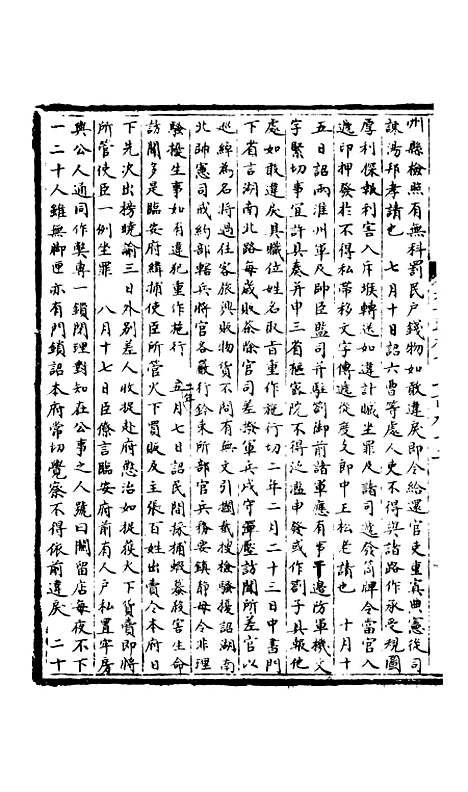 州縣檢照有無科罰民戶錢物如敢違戾即令給還官吏重寘典憲從司
諫湯邦彥請也　七月十日詔六曹等處人吏不得與諸路作承受規圖
厚利探報利害入斥堠轉送如違計贓坐罪及諸司遞發筒牌令當官入
遞印押發放不得私帶移文字傳遞從度支郎中王松老請也　十月十
五日詔兩淮州軍及帥臣監司并駐劄御前諸軍應有事干邊防軍機文
字緊切事宜許具奏并申三省樞密院不得泛濫申發或作劄子具報他
處如敢違戾具職位姓名取旨重作施行切二年二月二十三日中書門
下省言湖南北路每歲收茶除官司差撥軍兵戍守彈壓訪聞所差官以
巡綽為名將過往客旅興販物貨不問有無文引攔截搜檢騷擾詔湖南
北帥憲司戒約部轄兵將官各嚴行鈐束所部官兵務安鎮靜毋令非理
騷擾生事如有違犯重作施行　二年五月七日詔民間採捕蝦蟇殺害生命
訪聞多是臨安府緝捕使臣所管火下買販及主張百姓出賣令本府日
下先次出榜曉諭三日外別差人收捉赴府懲治如捉獲火下貨賣即將
所管使臣一例坐罪　八月十七日臣僚言臨安府前有人戶私置牢房
與公人通同作弊專一鎖閉理對知在公事之人號曰關留店每夜不下
一二十人雖無腳匣亦有門鎖詔本府常切覺察不得依前違戾　二十